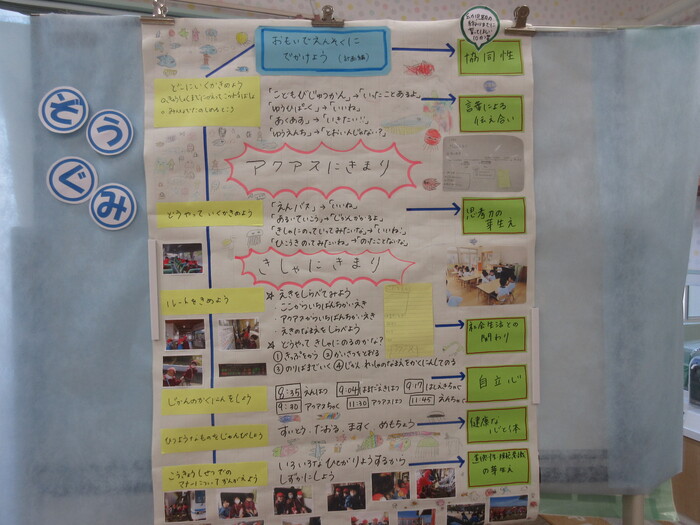 ぞう
ぐみ
おもいでえんそくに
でかけよう (計画編)
協同性
どこにいくかきめよう
「こどもびじゅつかん」→「いったことあるよ」
「ゆうひぱーく」→「いいね」
「あくあす」→「いきたい!!」
「ゆうえんち」→「とおいんじゃない?」
言葉による
伝え合い
アクアスにきまり
どうやっていくかきめよう
「えんバス」→「いいね」
「あるいていこう」→「じかんかかるよ」
「きしゃにのっていってみたいな」→「いいね!」
「ひこうきのってみたいね」→「のったことないな」
思考力の
芽生え
きしゃにきまり
ルートをきめよう
☆ えきをしらべてみよう
ここからいちばんちかいえき
アクアスからいちばんちかいえき
えきのなまえをしらべよう
☆ どうやって きしゃにのるのかな?
①きっぷをかう ②かいさつをとおる
③のりばまでいく ④じかん
社会生活との
関わり
じかんのかくにんをしよう
9:35 えんしゅっぱつ
9:04
9:17
9:30 アクアスちゃく 11:30 アクアスはつ 11:45 えんちゃく
自立心
ひつようなものをじゅんびしよう
すいとう、たおる、ますく、めもちょう
健康な
心と体
こうきょうしせつでの
マナーについてかんがえよう
いろいろなひとがりようするから
しずかにしよう
道徳性・規範意識
の芽生え